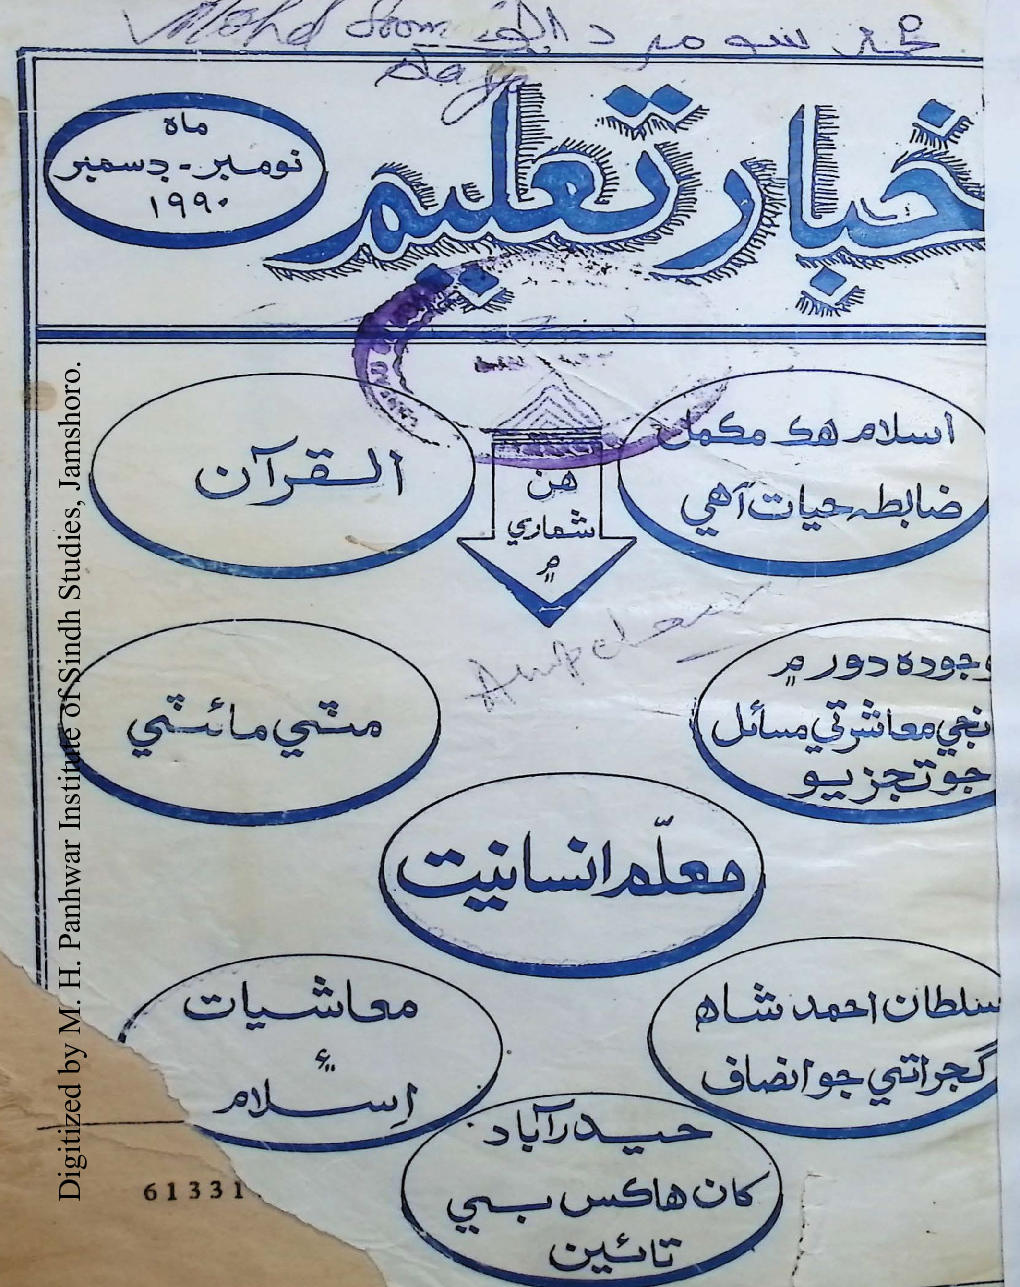 Mohd Soom
محمد سومر
ماه
نومبر - ڊسمبر
۱۹۹۰
خبار تعليم
اسلام هڪ مڪمل
ضابطہ حيات آهي
القرآن
هن
شماري
۾
وجوده دور ۾
نجي معاشرتي مسائل
جو تجزيو
مٽي مائٽي
معلّم انسانيت
سلطان احمد شاھ
گجراتي جو انصاف
معاشيات
۽
اسلام
حيدرآباد
کان هاڪس بي
تائين
61331
Digitized by M. H. Panhwar Institute of Sindh Studies, Jamshoro.